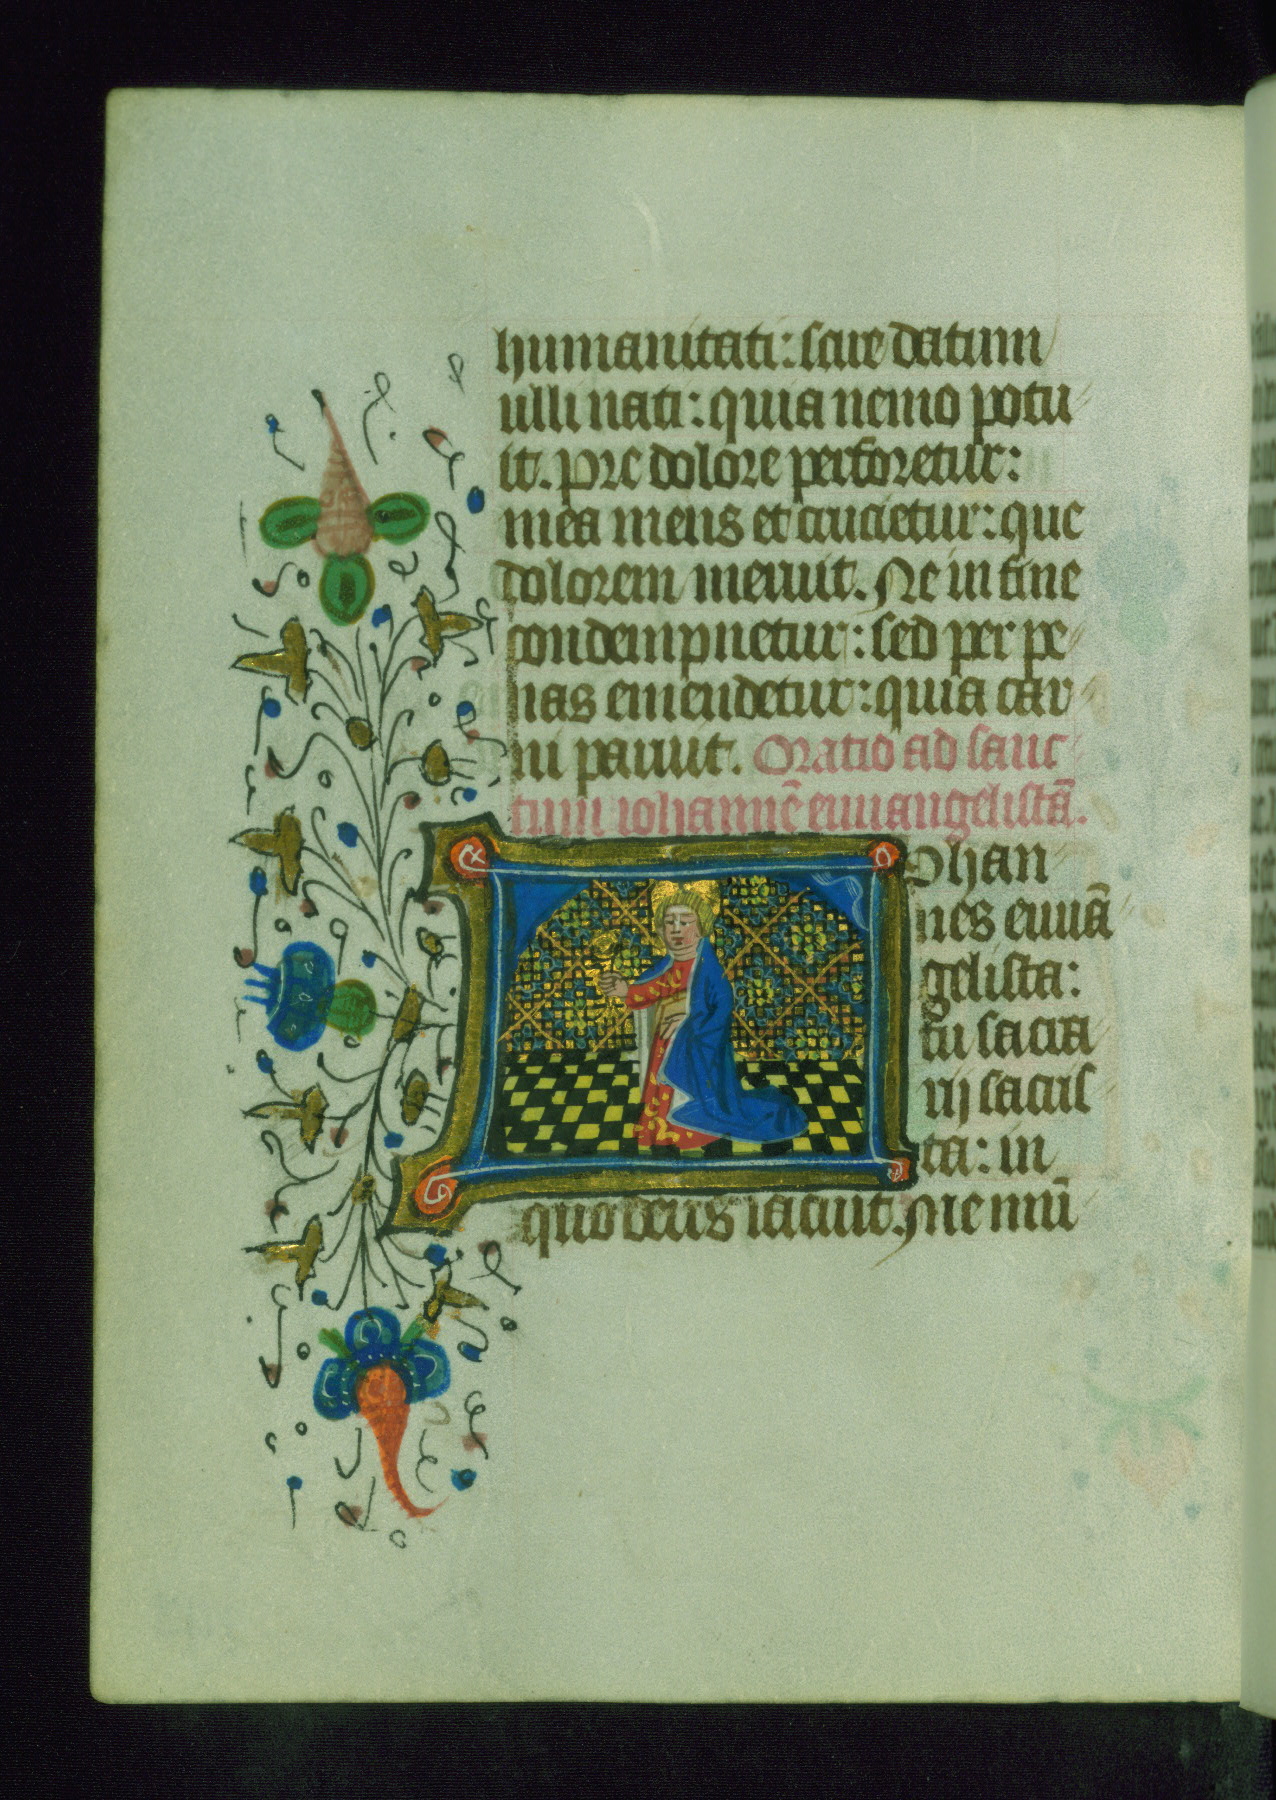 humanitati: scire datum
ulli nati: quia nemo potu
it. Pre dolore perforetur:
mea mens et crucietur: que
dolorem meruit. Ne in fine
condempnetur: sed per pe
nas emendetur: quia car
ni paruit. Oratio ad sanc
tum iohannē euuangelistā.
ohan
nes euuā
gelista:
tu sacra
rij sacris
ta: in
quo deus iacuit. Me mū